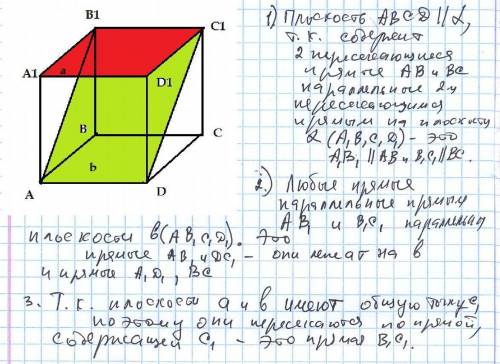 B1
C1
A1
a
D1
B
C
b
A
D
1) Плоскость ABCD || α,
т.к. содержит
2 пересекающиеся
прямые AB и BC
параллельные 2м
пересекающимся
прямым на плоскости
α (A₁B₁C₁D₁) - это
A₁B₁ || AB и B₁C₁ || BC.
2) Любые прямые
параллельные прямым
AB₁ и B₁C₁ параллельны
плоскости в (AB₁C₁D). Это
прямые AB₁ и DC₁ - они лежат на в
и прямые A₁D₁, BC
3. Т.к. плоскости а и в имеют общую точку C₁
поэтому они пересекаются по прямой,
содержащей C₁ - это прямая B₁C₁.